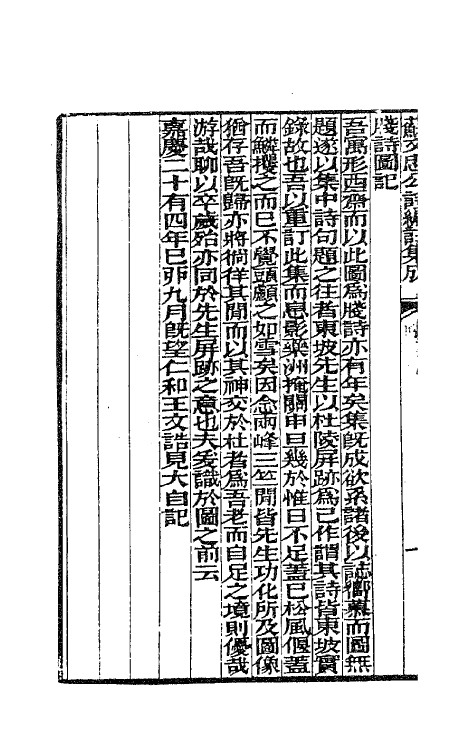 蘇文忠公詩編註集成
牋詩圖記
吾寓形西齋而以此圖為牋詩亦有年矣集旣成欲系諸後以誌嚮慕而圖無
題遂以集中詩句題之往者東坡先生以杜陵屛跡為己作謂其詩皆東坡實
錄故也吾以重訂此集而息影藥洲掩關申旦幾於惟日不足蓋已松風偃蓋
而鱗櫻之而巳不覺頭顱之如雪矣因念兩峰三竺閒皆先生功化所及圖像
猶存吾旣歸亦將徜徉其閒而以其神交於杜者為吾老而自足之境則優哉
游哉聊以卒歲殆亦同於先生屛跡之意也夫爰識於圖之前云
嘉慶二十有四年巳卯九月旣望仁和王文誥見大自記